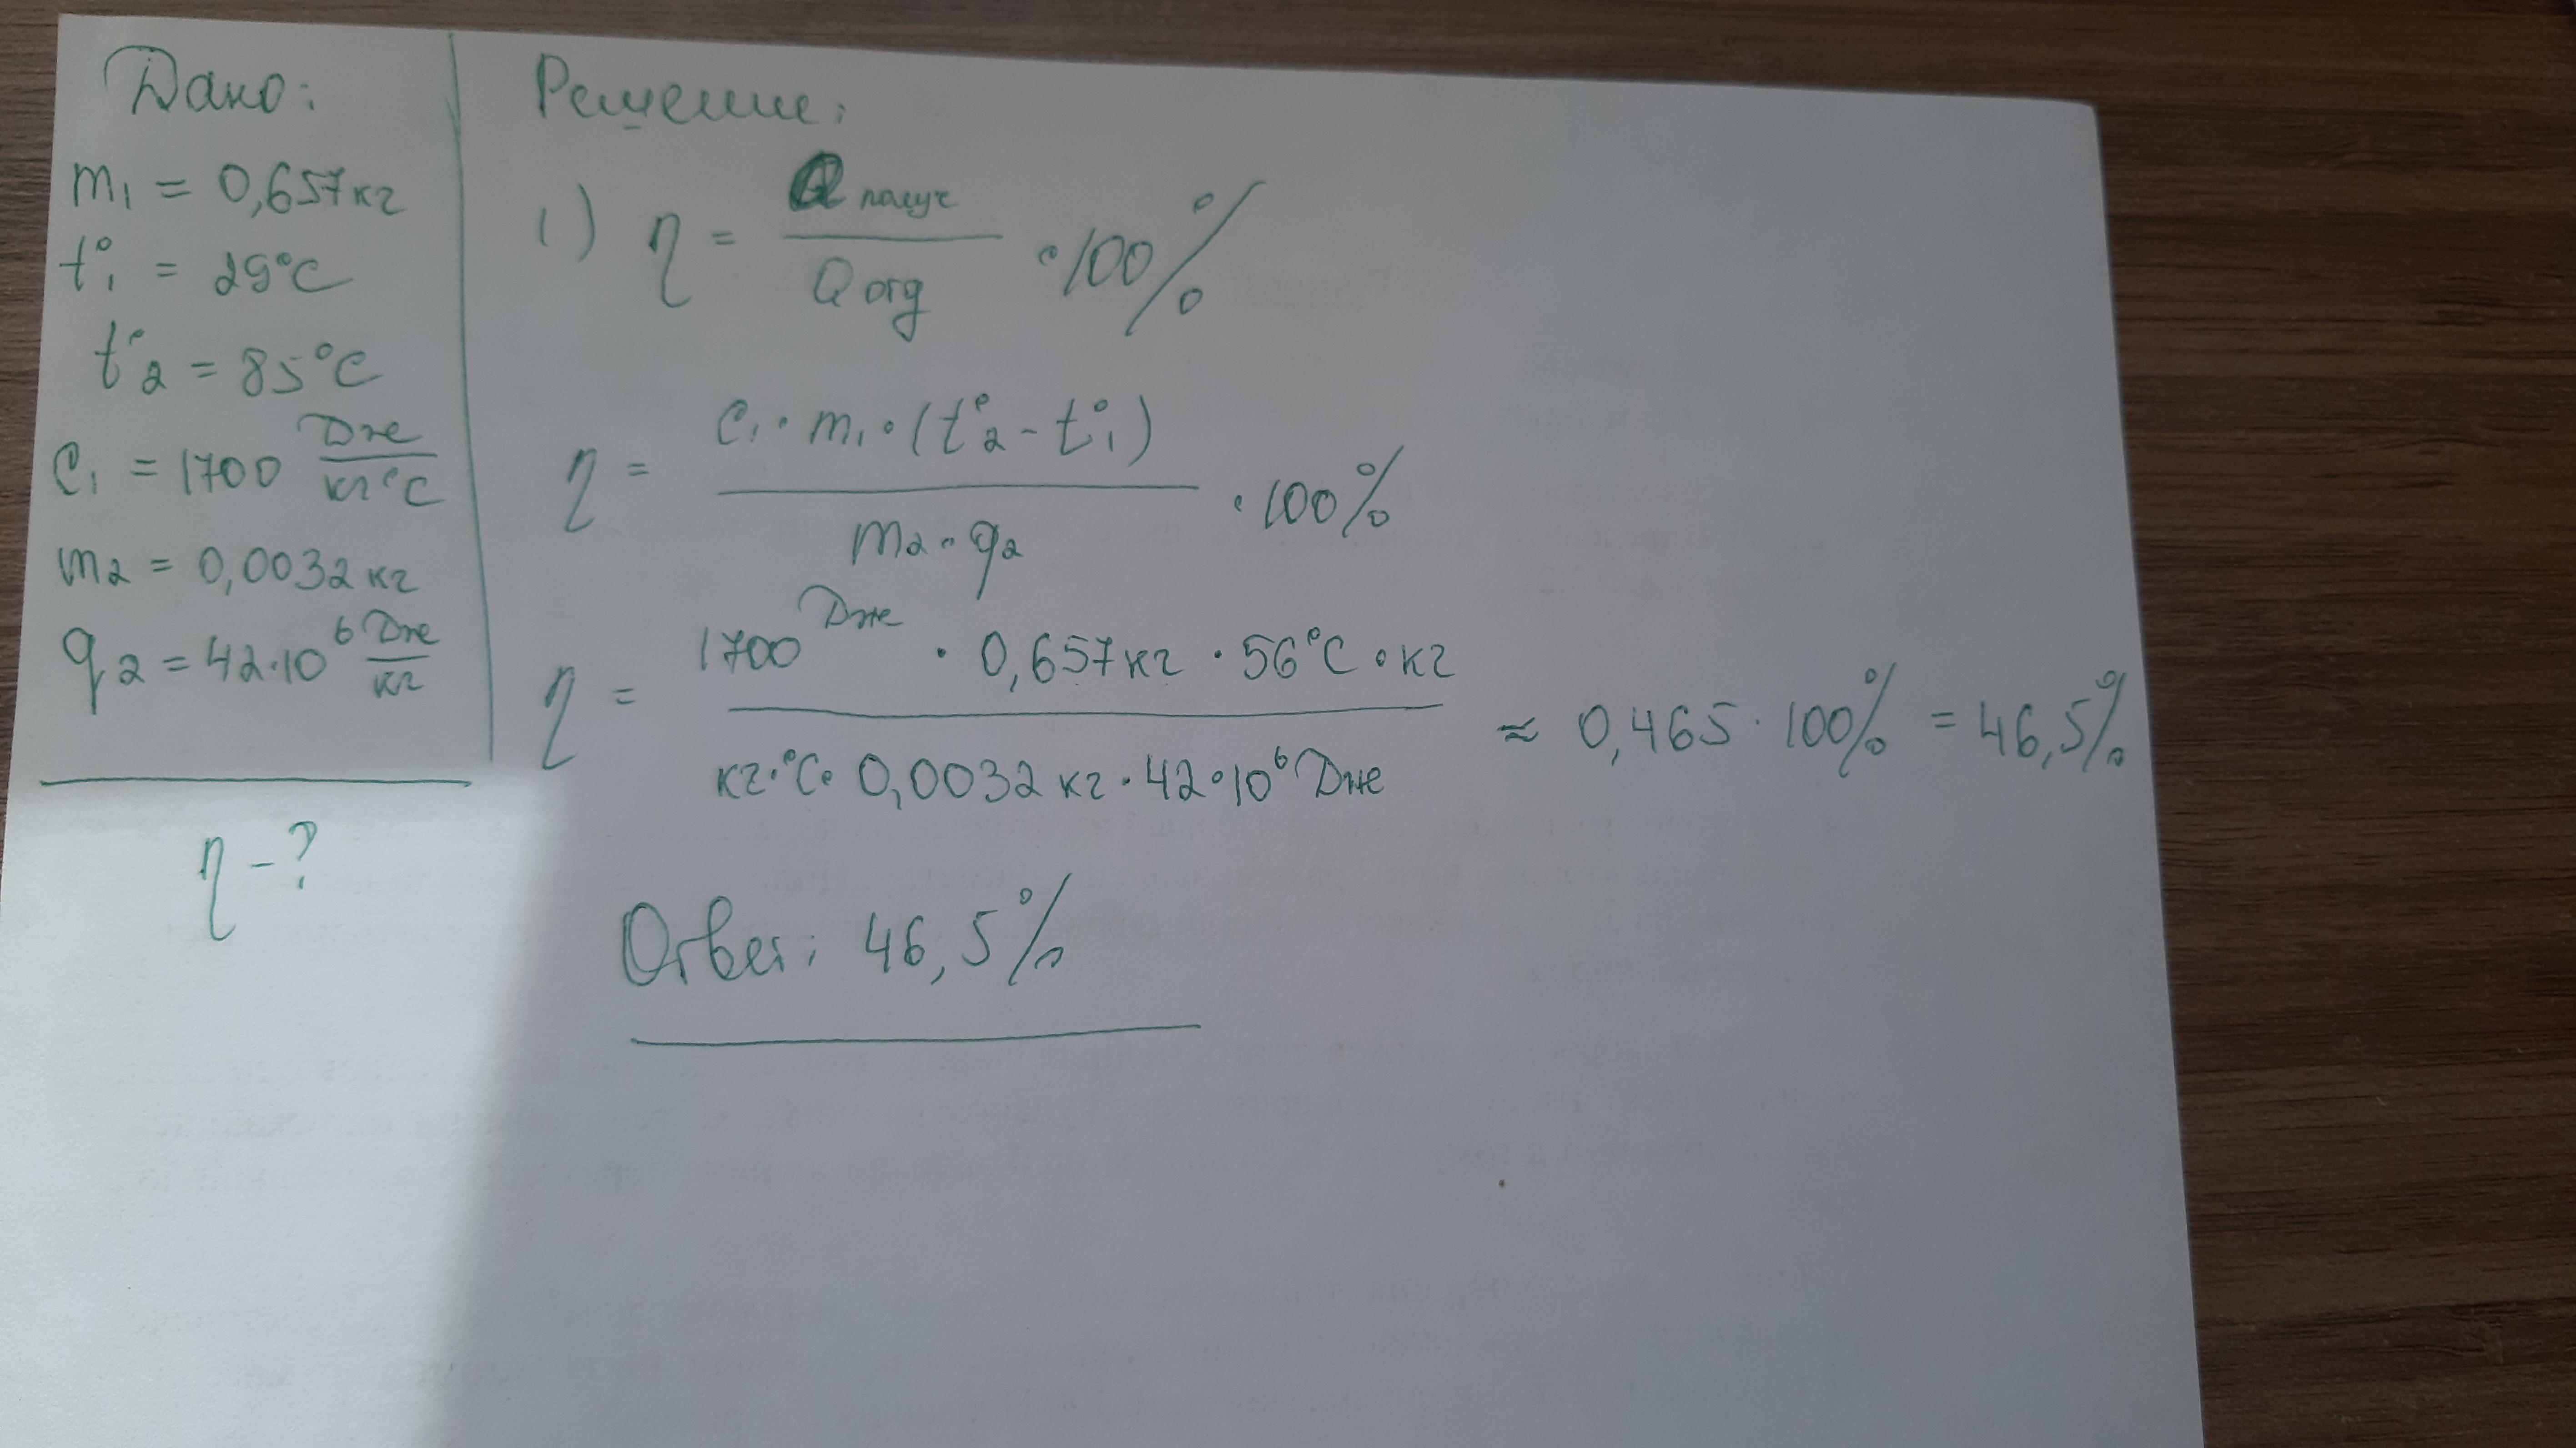 Дано:
m₁ = 0,657 кг
t°₁ = 29°C
t°₂ = 85°C
c₁ = 1700 Дж/кг°C
m₂ = 0,0032 кг
q₂ = 42·10⁶ Дж/кг
η - ?
Решение:
1) η = Q получ / Q отд · 100%
η = c₁ · m₁ · (t°₂ - t°₁) / m₂ · q₂ · 100%
η = 1700 Дж · 0,657 кг · 56°C · кг / кг·°C · 0,0032 кг · 42·10⁶ Дж ≈ 0,465 · 100% = 46,5%
Ответ: 46,5%